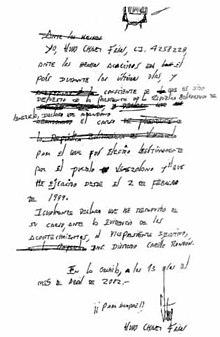 Yo, Hugo Chavez Frías, C.I. 4258228
ante los hechos acaecidos en el
país durante los últimos días, y
consciente de que he sido
depuesto de la presidencia de la República Bolivariana de
Venezuela, declaro que abandono
el cargo
para el que fui electo legítimamente
por el pueblo venezolano y que
he ejercido desde el 2 de febrero
de 1999.
Igualmente declaro que he removido de
su cargo, ante la evidencia de los
acontecimientos, al Vicepresidente Ejecutivo,
Ing. Diosdado Cabello Rondón.
En la Orchila, a los 13 días del
mes de abril de 2002.-
¡¡Para siempre!!
Hugo Chavez Frías